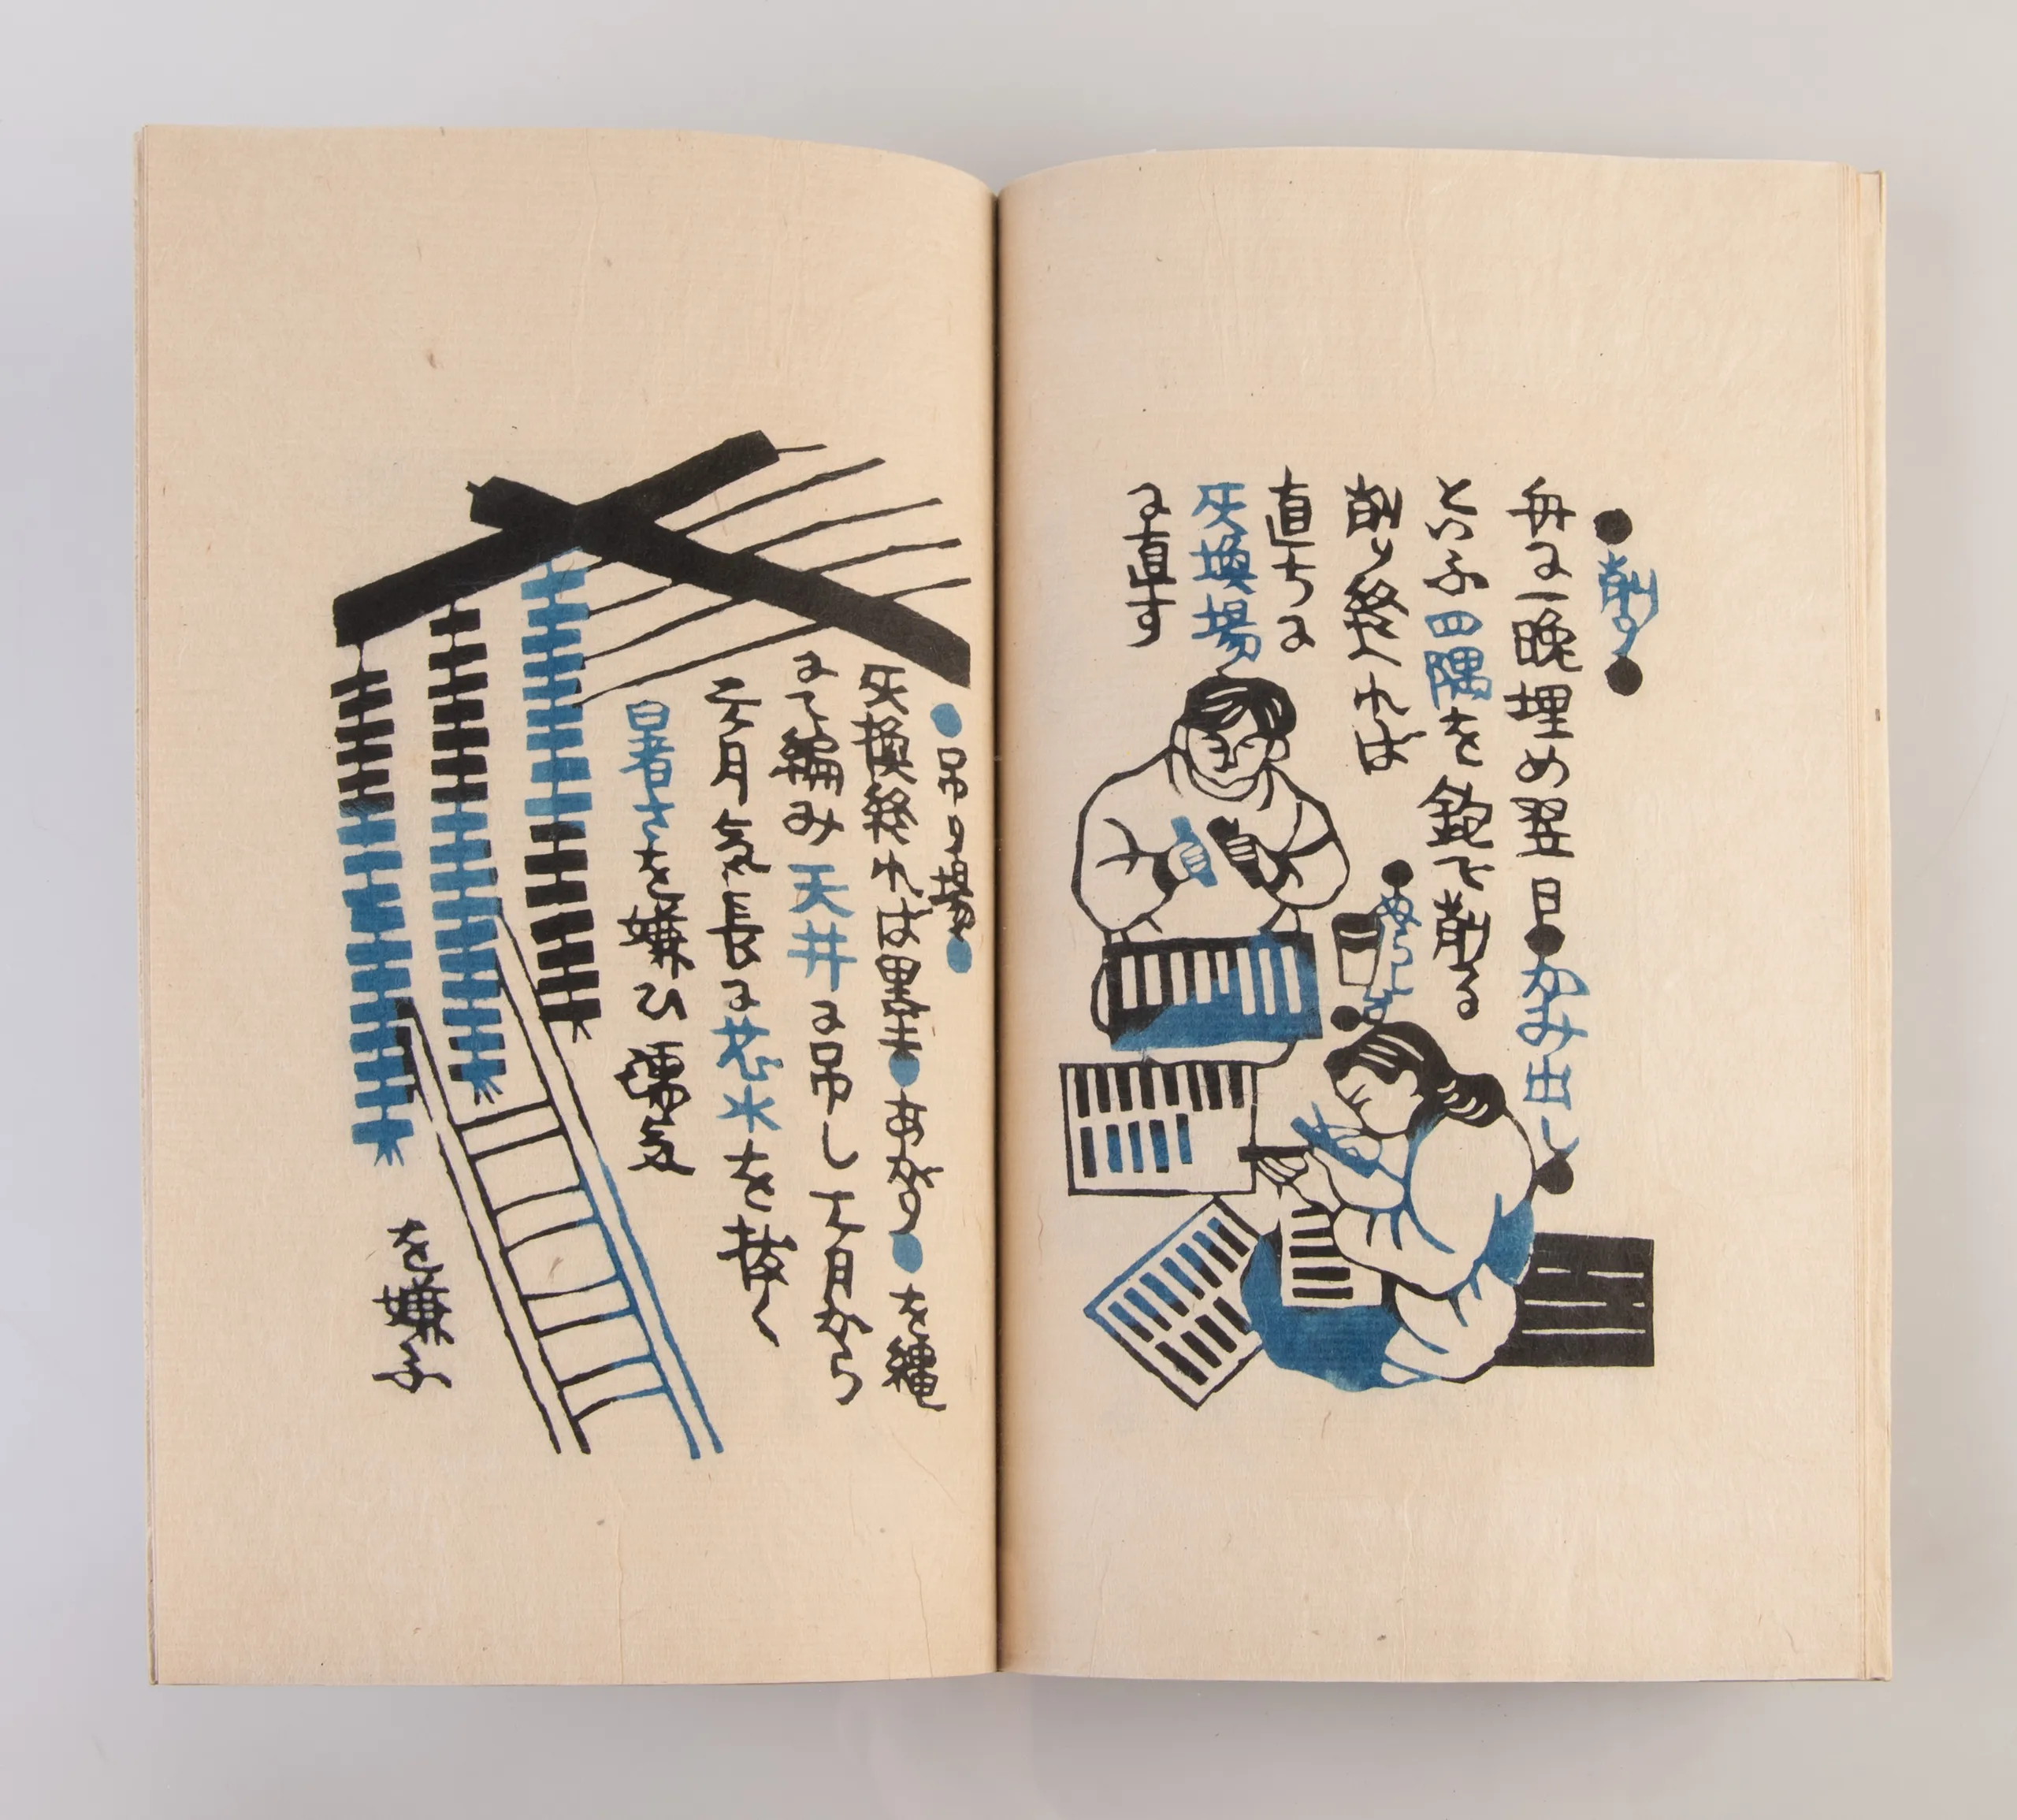 ●削り●
舟に一晩埋め翌日●かみ出し●
といふ四隅を鉋で削る
削り終へれば
直ちに
灰換場
に直す
●吊り場●
灰換終れば墨玉●あがり●を縄
にて編み天井に吊し十月から
三月気長に芯水を抜く
暑さを嫌ひ湿気
を嫌ふ